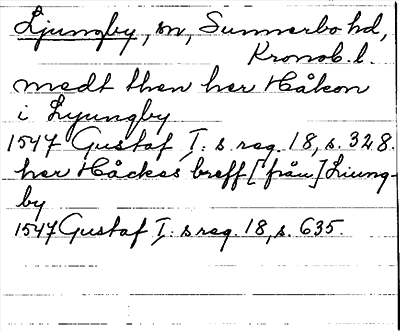 Ljungby, sn, Sunnerbo hd,
Kronob. l.
medt then her Håkon
i Lyungby
1547 Gustaf I: s reg. 18, s. 328.
her Håckes breff [från] Liung-
by
1547 Gustaf I: s reg. 18, s. 635.